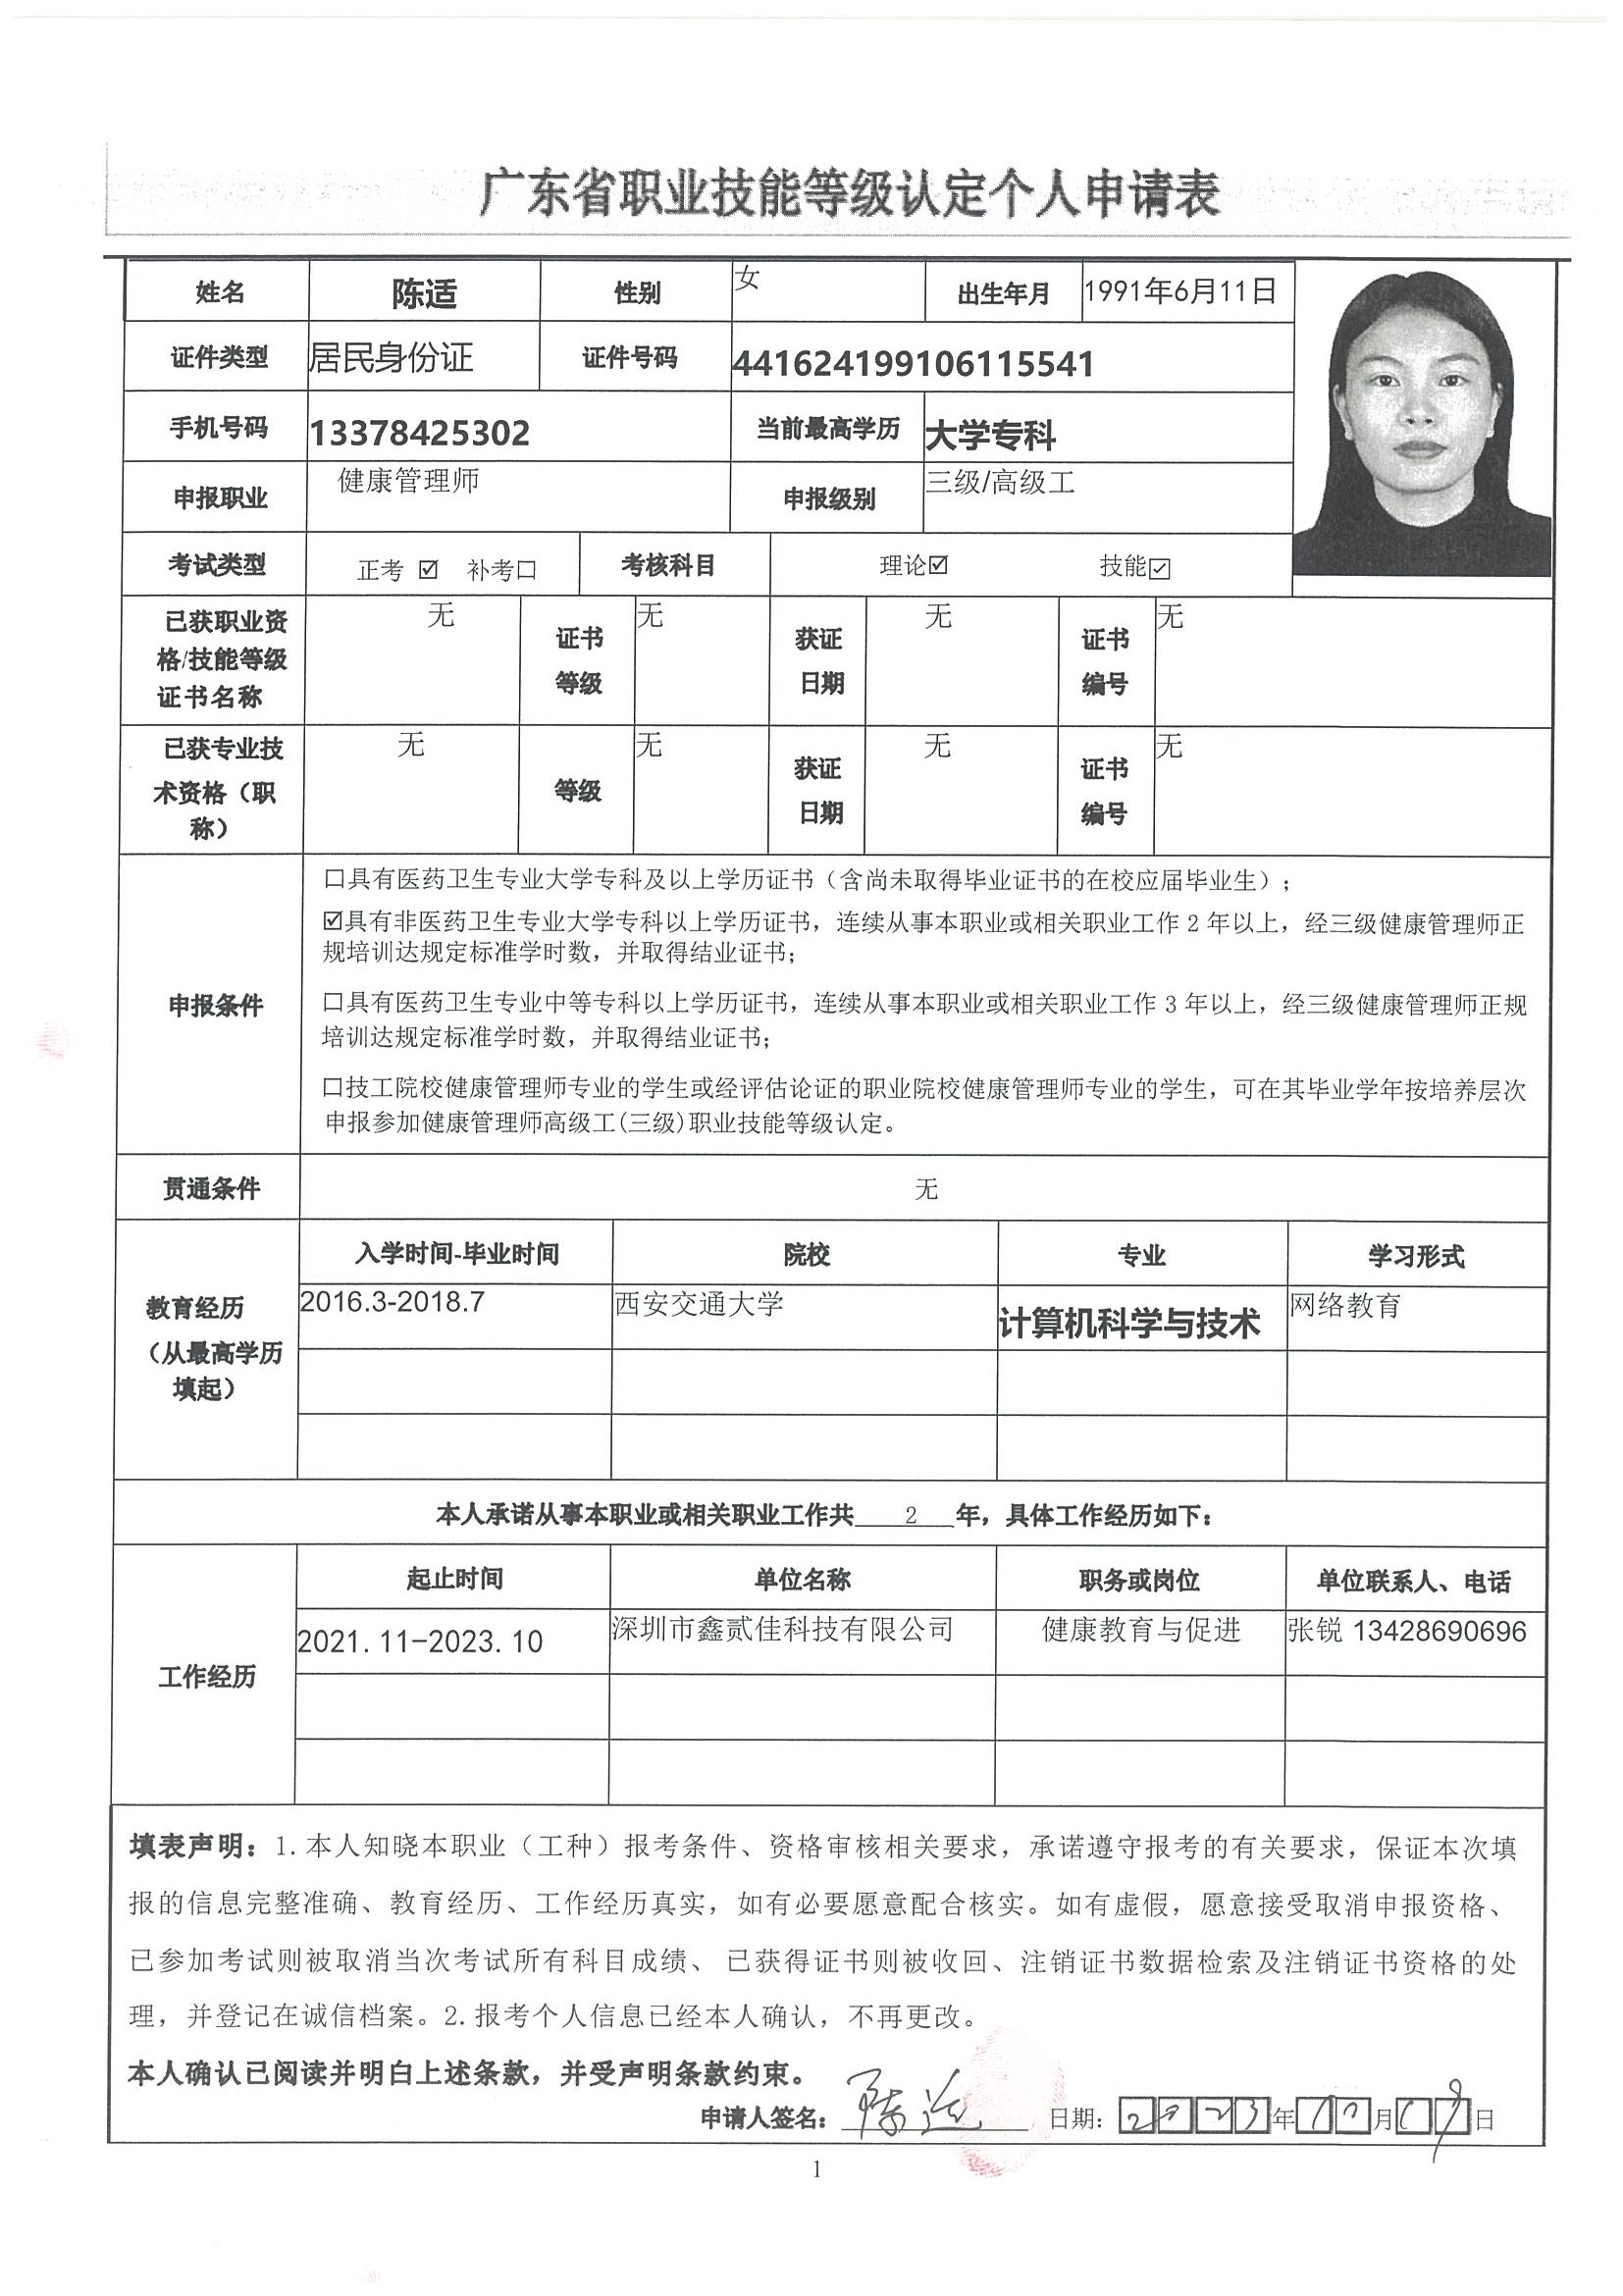 广东省职业技能等级认定个人申请表
姓名 陈适 性别 女 出生年月 1991年6月11日
证件类型 居民身份证 证件号码 441624199106115541
手机号码 13378425302 当前最高学历 大学专科
申报职业 健康管理师 申报级别 三级/高级工
考试类型 正考 ☑ 补考口 考核科目 理论☑ 技能☑
已获职业资格/技能等级证书名称 无 证书等级 无 获证日期 无 证书编号 无
已获专业技术资格（职称） 无 等级 无 获证日期 无 证书编号 无
申报条件
口具有医药卫生专业大学专科及以上学历证书（含尚未取得毕业证书的在校应届毕业生）；
☑具有非医药卫生专业大学专科以上学历证书，连续从事本职业或相关职业工作 2 年以上，经三级健康管理师正
规培训达规定标准学时数，并取得结业证书；
口具有医药卫生专业中等专科以上学历证书，连续从事本职业或相关职业工作 3 年以上，经三级健康管理师正规
培训达规定标准学时数，并取得结业证书；
口技工院校健康管理师专业的学生或经评估论证的职业院校健康管理师专业的学生，可在其毕业学年按培养层次
申报参加健康管理师高级工(三级)职业技能等级认定。
贯通条件 无
教育经历（从最高学历填起）
入学时间-毕业时间 院校 专业 学习形式
2016.3-2018.7 西安交通大学 计算机科学与技术 网络教育
本人承诺从事本职业或相关职业工作共 2 年，具体工作经历如下：
工作经历
起止时间 单位名称 职务或岗位 单位联系人、电话
2021.11-2023.10 深圳市鑫贰佳科技有限公司 健康教育与促进 张锐 13428690696
填表声明：1.本人知晓本职业（工种）报考条件、资格审核相关要求，承诺遵守报考的有关要求，保证本次填
报的信息完整准确、教育经历、工作经历真实，如有必要愿意配合核实。如有虚假，愿意接受取消申报资格、
已参加考试则被取消当次考试所有科目成绩、 已获得证书则被收回、注销证书数据检索及注销证书资格的处
理，并登记在诚信档案。2.报考个人信息已经本人确认，不再更改。
本人确认已阅读并明白上述条款，并受声明条款约束。
申请人签名：陈适 日期：2023年10月19日
1